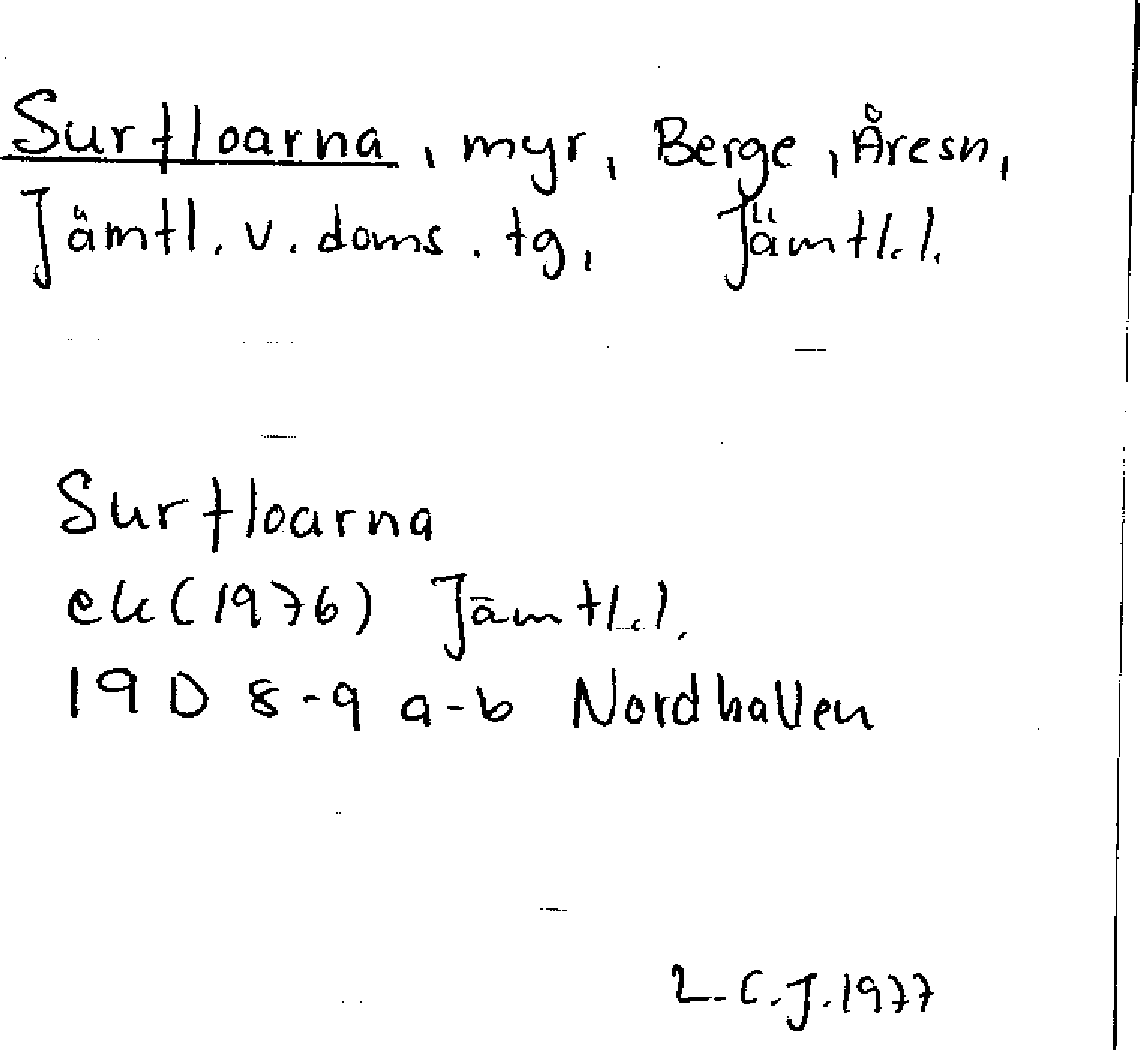 Surfloarna, myr, Berge, Åresn,
Jämtl. v. doms. tg, Jämtl. l.
Surfloarna
ek (1976) Jämtl. l.
19 D 8-9 a-b Nordhallen
L. C. J. 1977